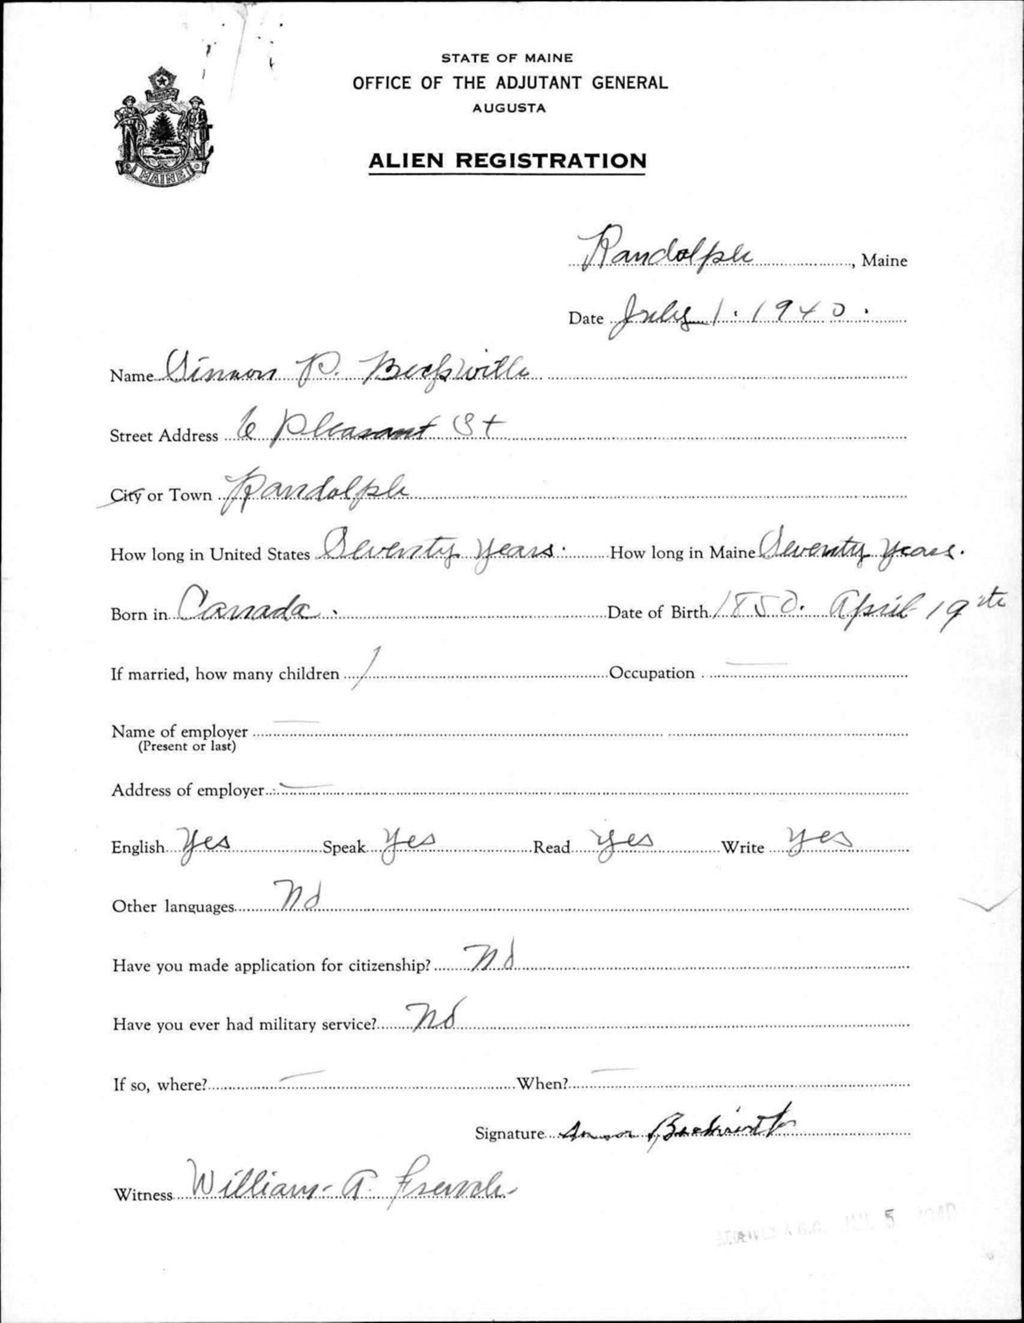 STATE OF MAINE
OFFICE OF THE ADJUTANT GENERAL
AUGUSTA
MAINE
ALIEN REGISTRATION
Randolph, Maine
Date July 1. 1940.
Name Simon P.
Street Address 6 Pleasant St
City or Town Randolph
How long in United States Seventy years. How long in Maine Seventy years.
Born in Canada. Date of Birth 1850. April 19th
If married, how many children 1 Occupation —
Name of employer —
(Present or last)
Address of employer —
English Yes Speak Yes Read Yes Write Yes
Other languages No
Have you made application for citizenship? No
Have you ever had military service? No
If so, where? — When? —
Signature
Witness William A. French
5 1940